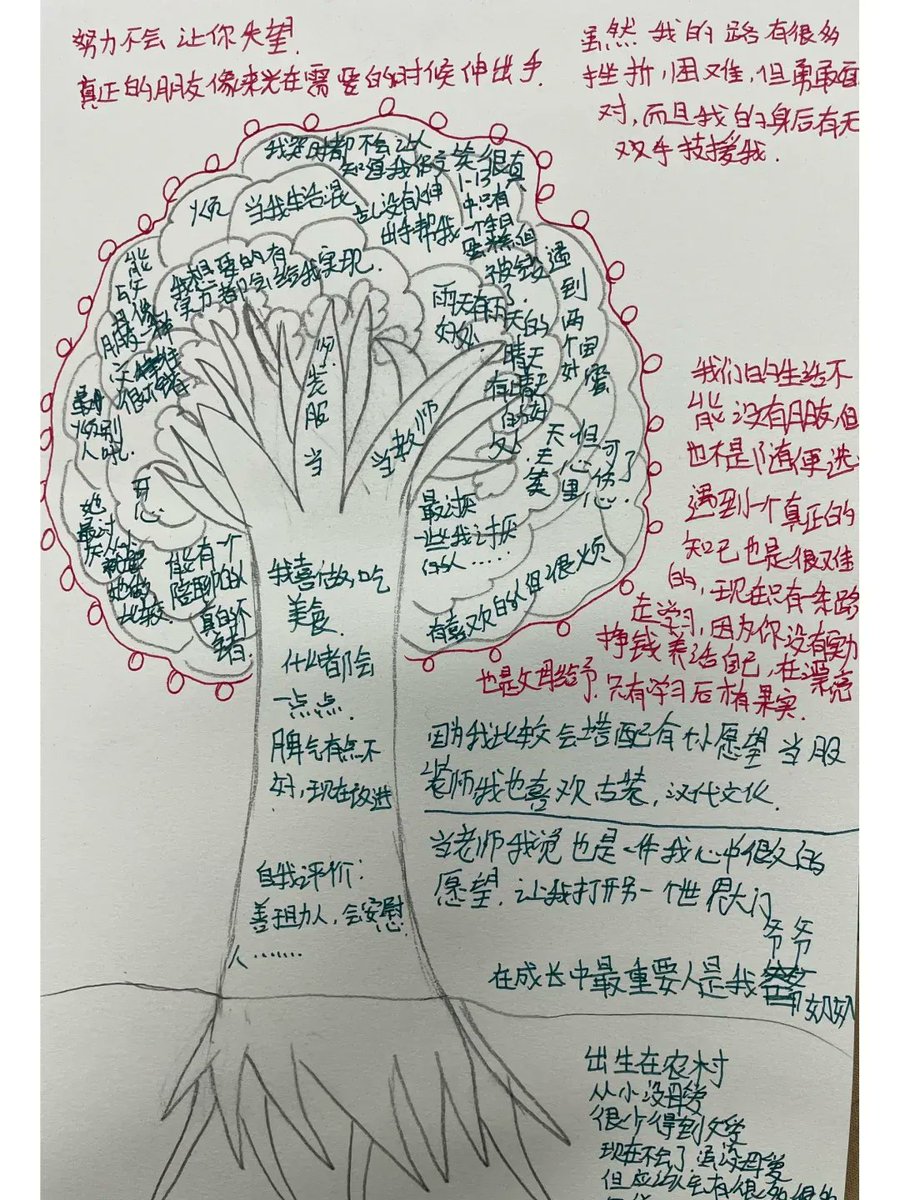 努力不会让你失望.
真正的朋友像束光在需要的时候伸出手.
虽然我的路有很多
挫折,困难,但勇敢面
对,而且我的身后有无
双手支援我.
我哭时都不会让人
知道我
很真
当我生活混
乱没有伸
出手帮我
1-13
中只有
一个生日
蛋糕但
烦
我想要的有
实力都会给我实现.
能
朋友一样
雨天有雨天的
好处
晴天
有晴天
的好
处
遇
到
两
个
当
服装
当教师
但
心
里
可
伤
心
了
天
天
笑
最讨厌
一些我讨厌
的人……
有喜欢的人但很烦
开
心
她
最讨
厌
她做
比较
能有一个
陪聊的人
真的不
错
我们的生活不
能没有朋友但
也不是随便选
遇到一个真正的
知己也是很难
的,现在只有一条路
走学习,因为你没有实力
挣钱养活自己,在漂亮
也是父母给予.只有学习后才有果实.
我喜做,吃
美食.
什么都会
一点点.
脾气有点不
好,现在改进
自我评价:
善担力人,会安慰
人……
因为我比较会搭配有个愿望当服
装师我也喜欢古装,汉代文化.
当老师我觉也是一件我心中很久的
愿望.让我打开另一个世界大门
在成长中最重要人是我爷爷
奶奶
出生在农村
从小没母爱
很少得到父爱
现在不会了虽没母爱
但应该会有很多很多的